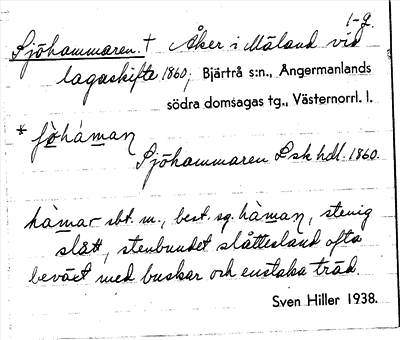 1-g.
Sjöhammaren. † Åker i Mäland vid
lagaskifte 1860; Bjärtrå s:n., Ångermanlands
södra domsagas tg., Västernorrl. l.
* ʃö̀hàman
Sjöhammaren Lsk hdl. 1860.
hàmar sbt. m., best. sg. hàman, stenig
slått, stenbundet slåttesland ofta
beväxt med buskar och enstaka träd.
Sven Hiller 1938.